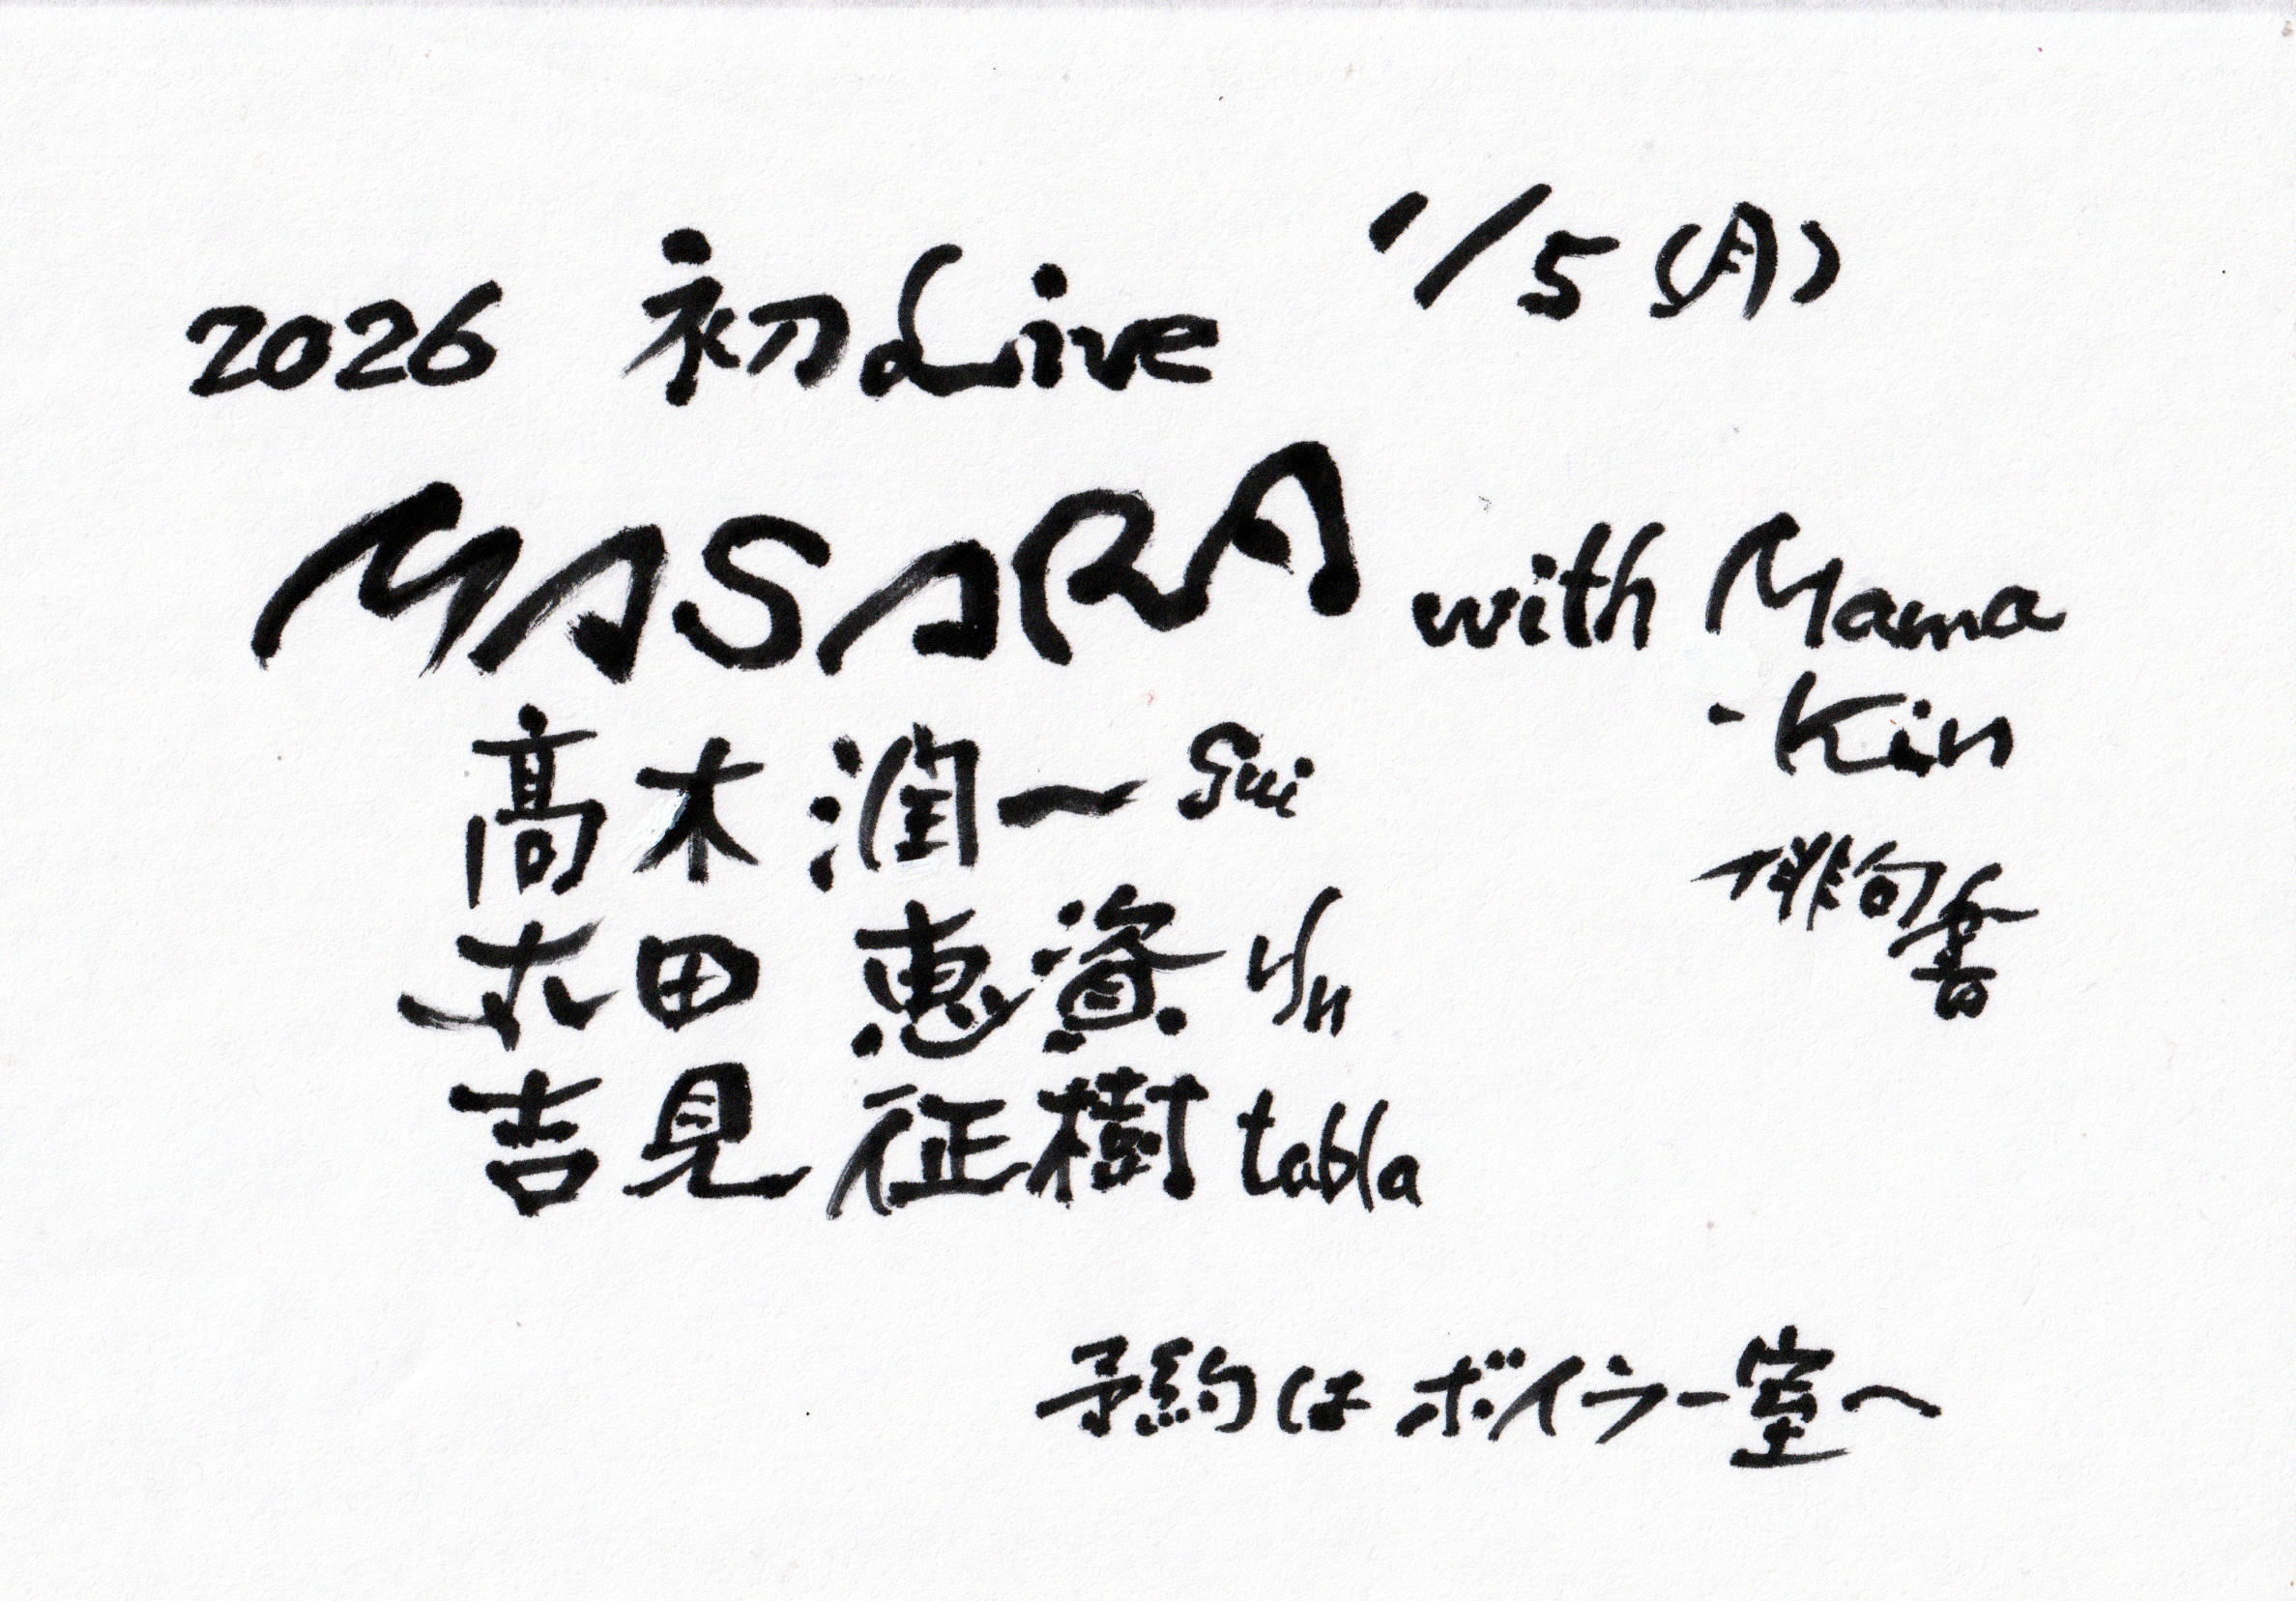 2026 初Live 1/5(月)
MASARA with Mama
-Kin
高木潤一 gui
太田惠資 vln
吉見征樹 tabla
俳句書
予約はボイラー室へ